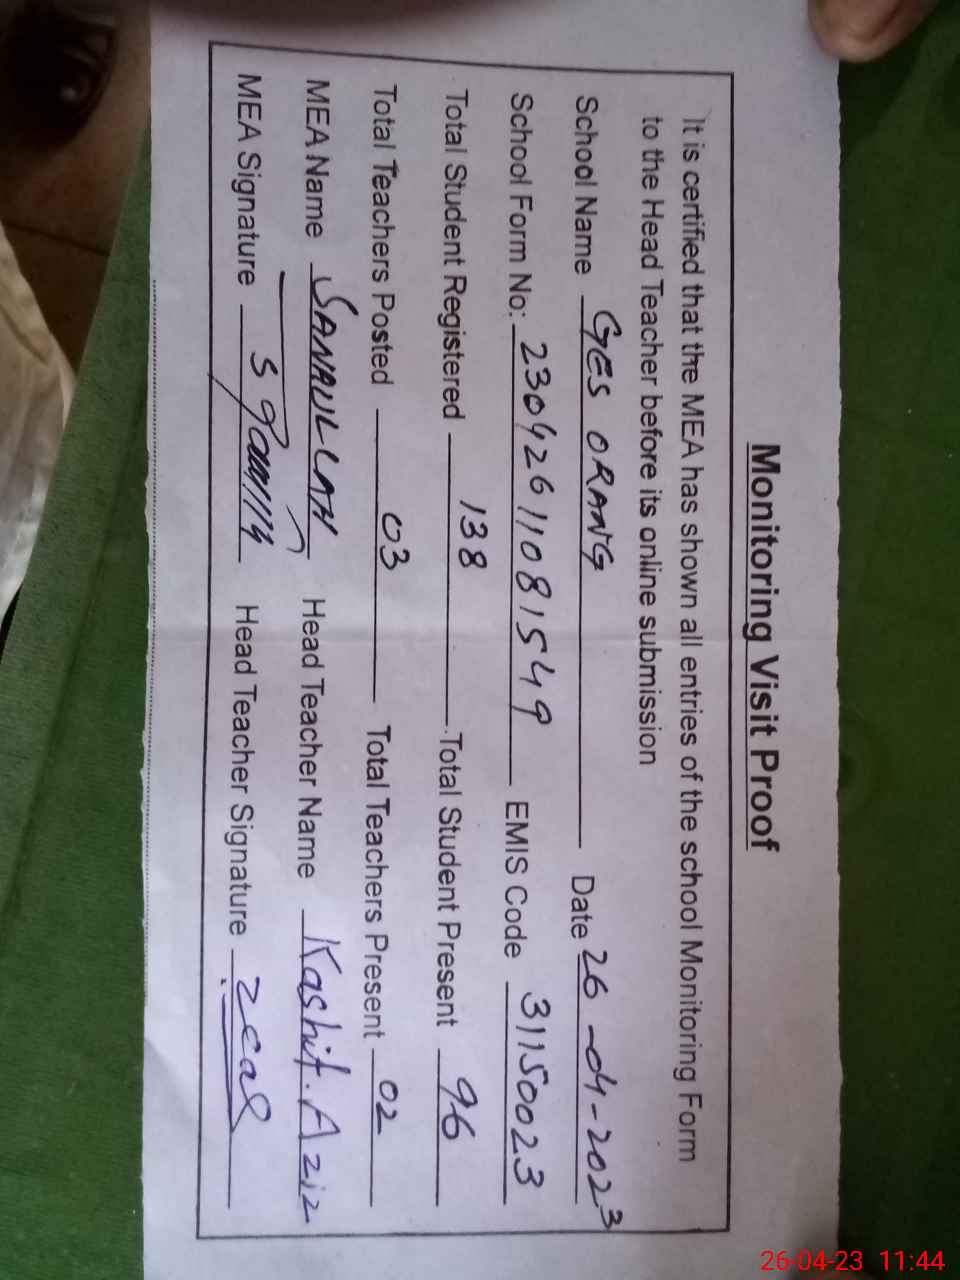 Monitoring Visit Proof
It is certified that the MEA has shown all entries of the school Monitoring Form
to the Head Teacher before its online submission
School Name GES ORANG Date 26-04-2023
School Form No: 23042611081549 EMIS Code 31150023
Total Student Registered 138 Total Student Present 96
Total Teachers Posted 03 Total Teachers Present 02
MEA Name SANAULLAH Head Teacher Name Kashif. Aziz
MEA Signature Head Teacher Signature
26-04-23 11:44